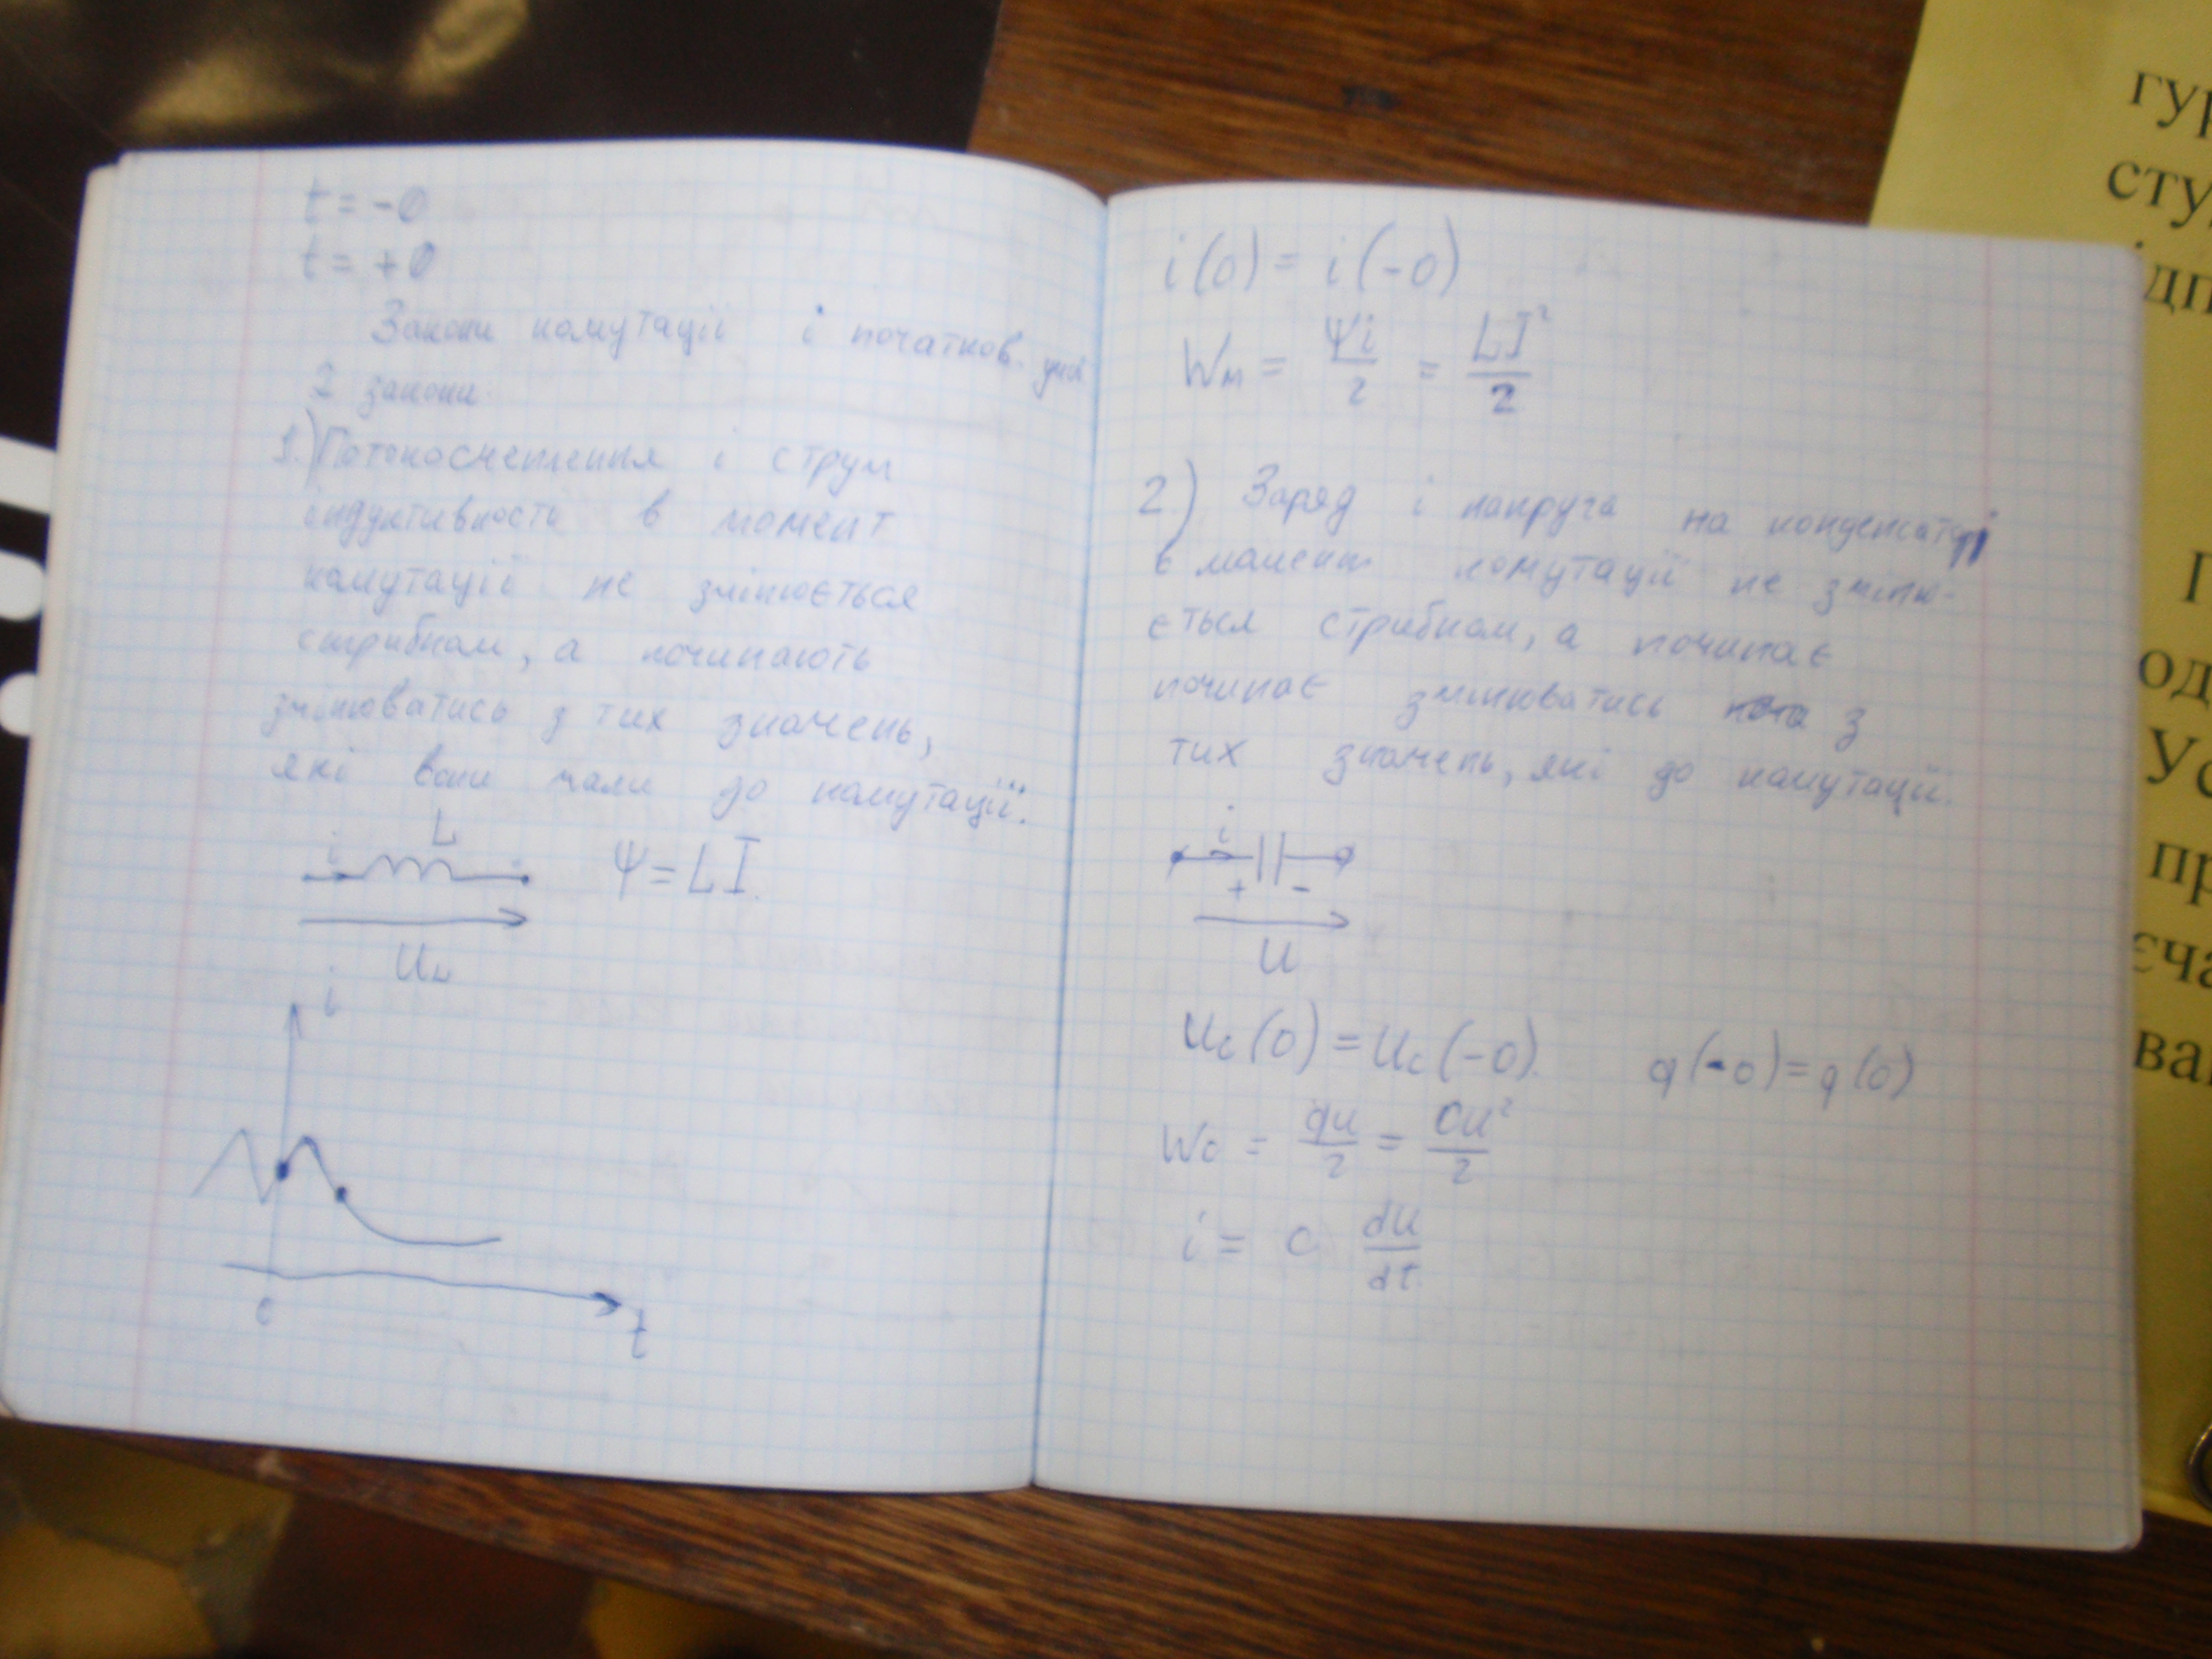 t = -0
t = +0
Закони комутації і початков. умов
2 закони.
1.) Потокозчеплення і струм
індуктивності в момент
комутації не змінюється
стрибком, а починають
змінюватись з тих значень,
які вони мали до комутації.
i L
Ψ = LI.
U_L
i
0
t
i(0) = i(-0)
W_м = Ψi/2 = LI²/2
2) Заряд і напруга на конденсаторі
в момент комутації не зміню-
ється стрибком, а починає
починає змінюватись з
тих значень, які до комутації.
i
+ -
U
U_c(0) = U_c(-0). q(-0) = q(0)
W_c = qu/2 = Cu²/2
i = C du/dt
гур
сту
ідп
П
од
Ус
пр
єча
ва